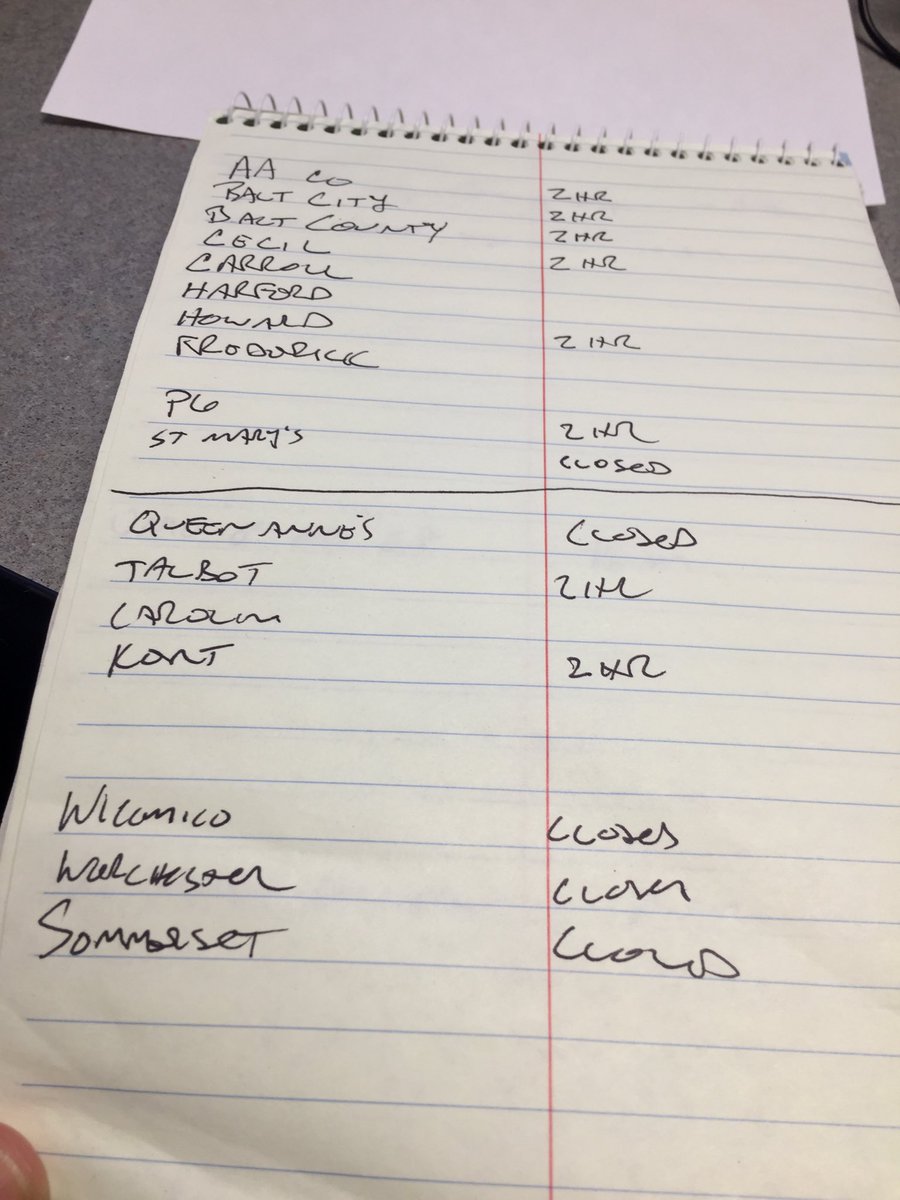 AA CO 2 HR
BALT CITY 2 HR
BALT COUNTY 2 HR
CECIL 2 HR
CARROLL
HARFORD
HOWARD 2 HR
FREDERICK
PG 2 HR
ST MARY'S CLOSED
QUEEN ANNE'S CLOSED
TALBOT 2 HR
CAROLIN
KENT 2 HR
WICOMICO CLOSED
WORCHESTER CLOSED
SOMMERSET CLOSED